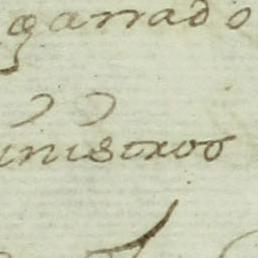 garrado
inistros